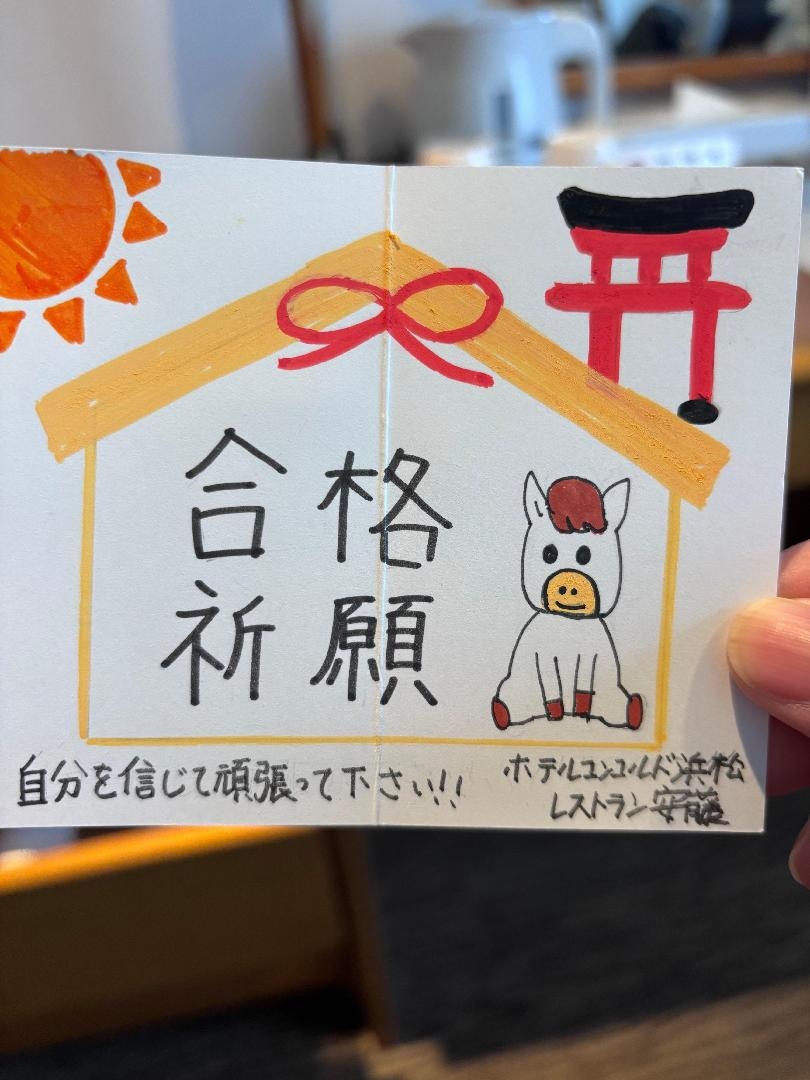 合格
祈願
自分を信じて頑張って下さい!!
ホテルコンコルド浜松
レストラン安藤